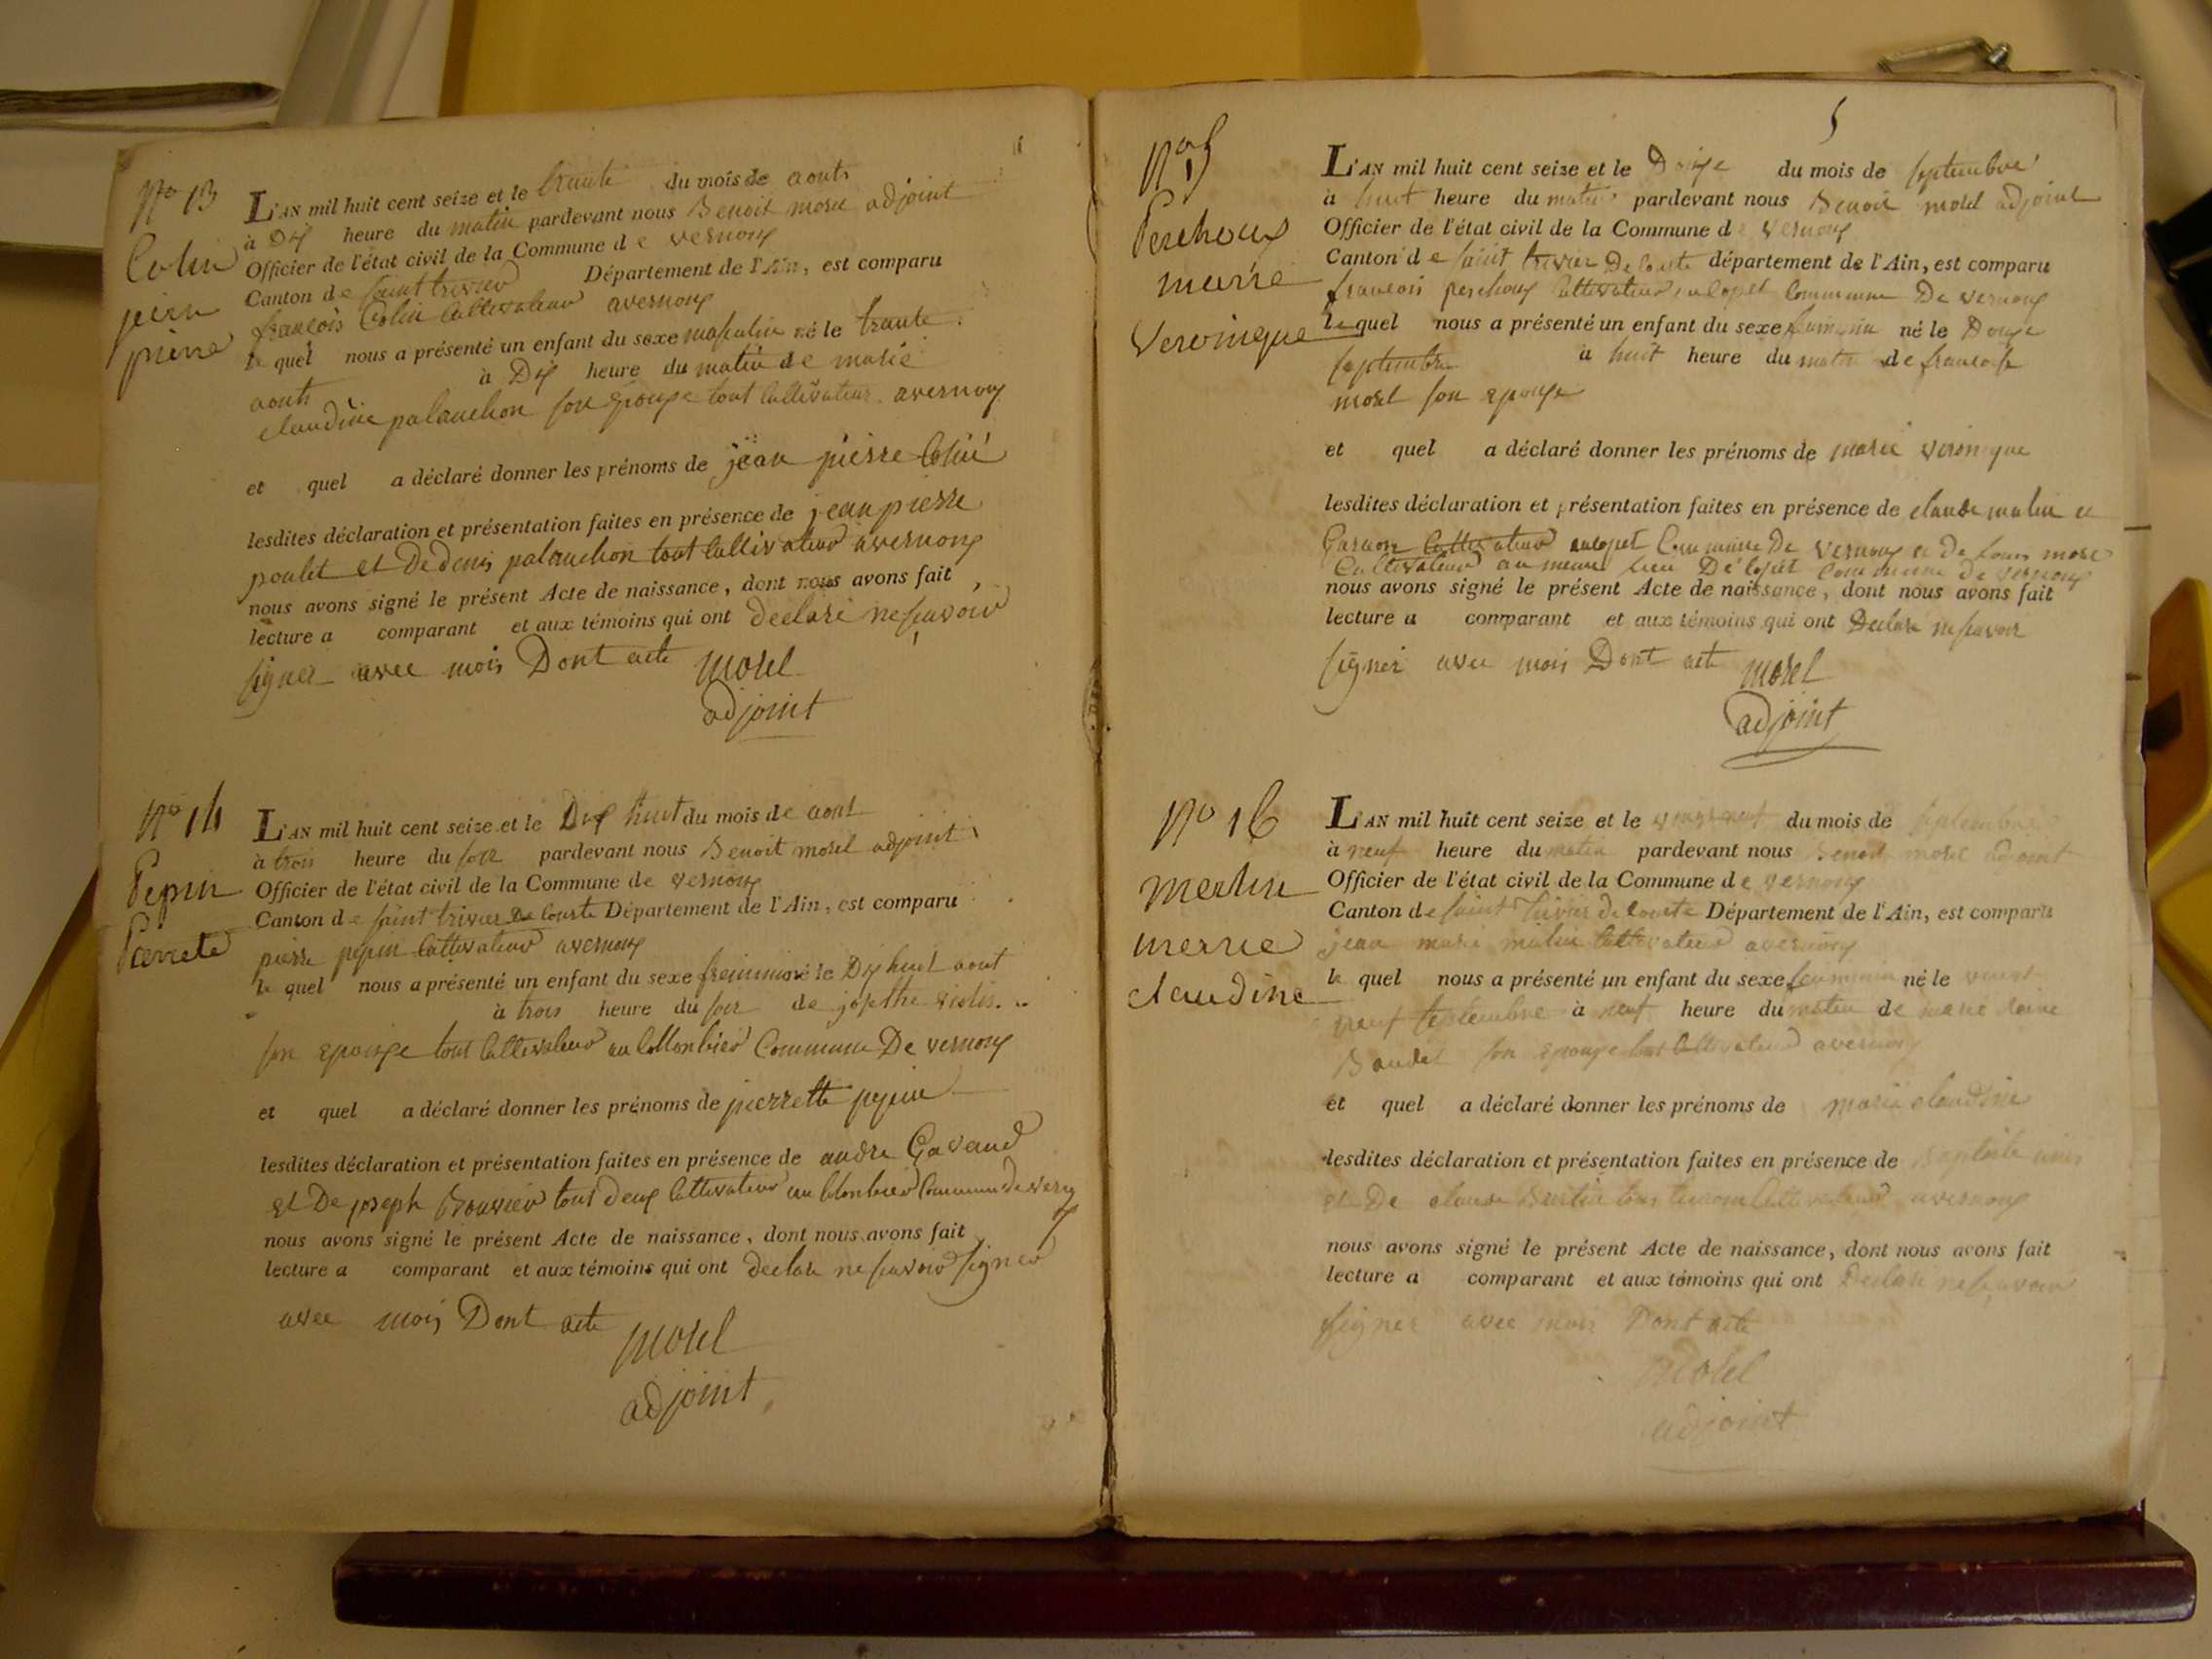 No 13
Colin
jean
pierre
L'AN mil huit cent seize et le trante du mois de aouts
à Dix heure du matin pardevant nous Benoit morel adjoint
Officier de l'état civil de la Commune de vernoux
Canton de saint trivier Département de l'Ain, est comparu
françois Colin Cultivateur avernoux
le quel nous a présenté un enfant du sexe masculin né le trante
aouts à Dix heure du matin de marie
claudine palanchon son epouse tout Cultivateur avernoux
et quel a déclaré donner les prénoms de jean pierre Colin
lesdites déclaration et présentation faites en présence de jean pierre
poulet et De denis palanchon tout Cultivateur avernoux
nous avons signé le présent Acte de naissance, dont nous avons fait
lecture a comparant et aux témoins qui ont declaré ne scavoir
signer avec mois Dont acte morel
adjoint
No 14
Pepin
L'AN mil huit cent seize et le Dix huit du mois de aout
à trois heure du soir pardevant nous Benoit morel adjoint
Officier de l'état civil de la Commune de vernoux
Canton de saint trivier De Courte Département de l'Ain, est comparu
pierre pepin Cultivateur avernoux
le quel nous a présenté un enfant du sexe né le Dix huit aout
à trois heure du soir de
son epouse tout Cultivateur au Collonbier Commune De vernoux
et quel a déclaré donner les prénoms de pierrette pepin
lesdites déclaration et présentation faites en présence de andre Gavand
et De joseph Bouvier tout deux Cultivateur au Colonbier Commune de vernoux
nous avons signé le présent Acte de naissance, dont nous avons fait
lecture a comparant et aux témoins qui ont declare ne scavoir signer
avec mois Dont acte morel
adjoint
5
No 15
Perchoux
marie
Veronique
L'AN mil huit cent seize et le Douze du mois de septembre
à huit heure du matin pardevant nous Benoit morel adjoint
Officier de l'état civil de la Commune de vernoux
Canton de saint trivier De Courte département de l'Ain, est comparu
francois perchoux Cultivateur Commune De vernoux
le quel nous a présenté un enfant du sexe né le Douze
septembre à huit heure du matin de
morel son epouse
et quel a déclaré donner les prénoms de marie veronique
lesdites déclaration et présentation faites en présence de claude
Cultivateur Commune De vernoux et de morel
Cultivateur au meme lieu Commune de vernoux
nous avons signé le présent Acte de naissance, dont nous avons fait
lecture a comparant et aux témoins qui ont Declare ne scavoir
signer avec mois Dont acte morel
adjoint
No 16
claudine
L'AN mil huit cent seize et le du mois de septembre
à neuf heure du matin pardevant nous Benoit morel adjoint
Officier de l'état civil de la Commune de vernoux
Canton de saint trivier de Courte Département de l'Ain, est comparu
jean marie Cultivateur avernoux
le quel nous a présenté un enfant du sexe né le vingt
neuf septembre à neuf heure du matin de marie
son epouse tout Cultivateur avernoux
et quel a déclaré donner les prénoms de marie claudine
lesdites déclaration et présentation faites en présence de
et De claude Cultivateur avernoux
nous avons signé le présent Acte de naissance, dont nous avons fait
lecture a comparant et aux témoins qui ont Declare ne scavoir
signer avec mois Dont acte
morel
adjoint